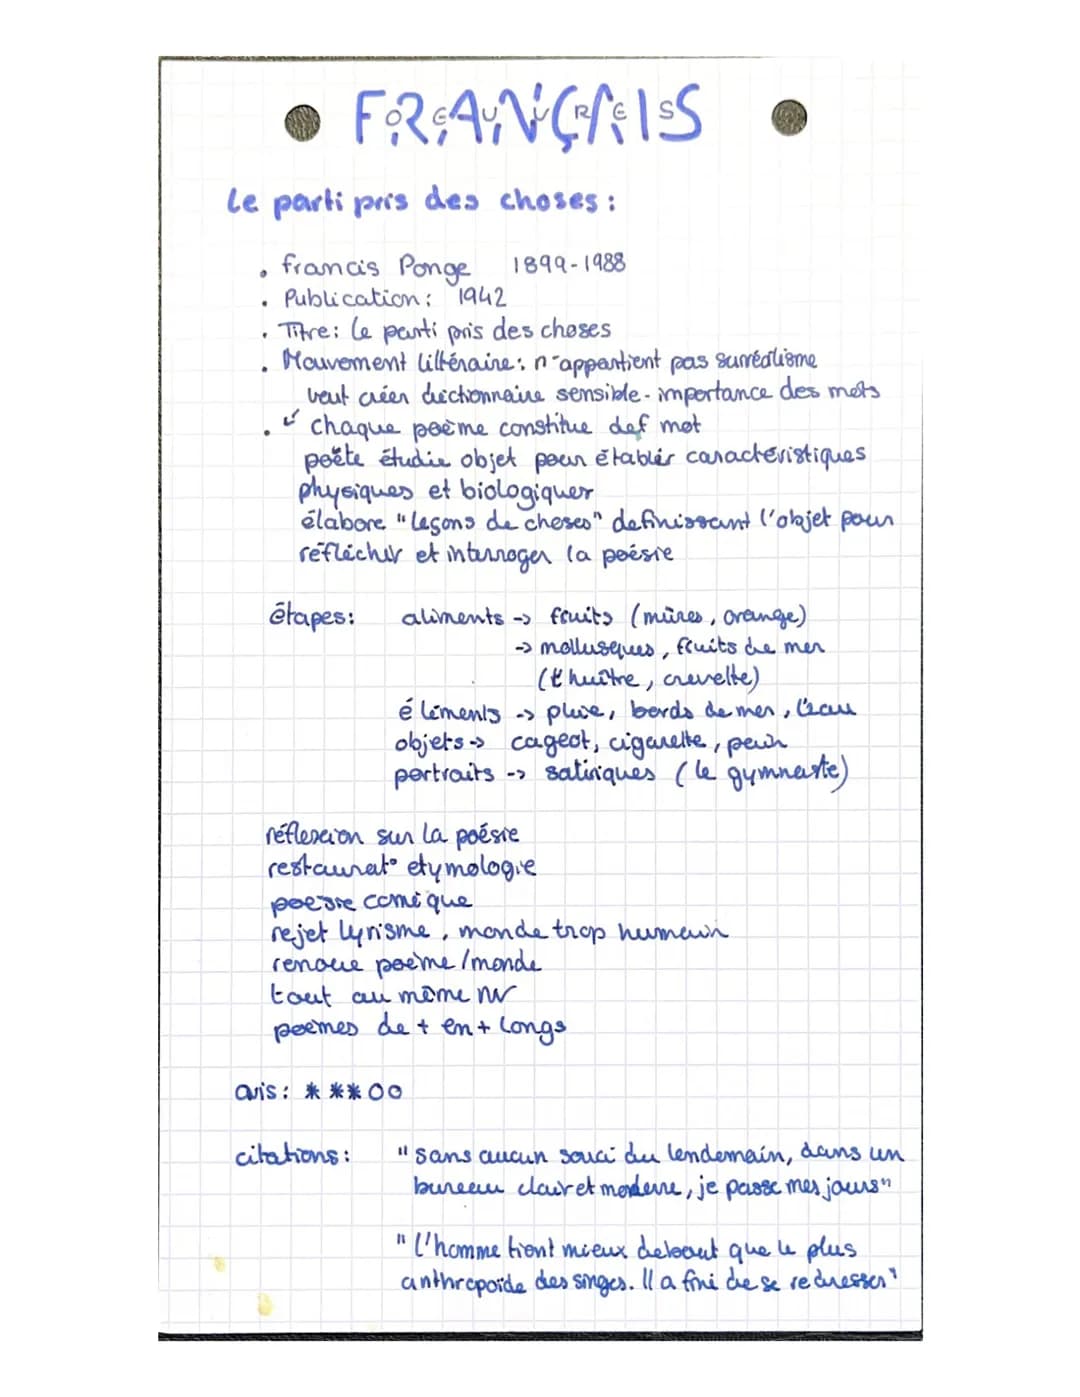 FRANÇAIS
OEUVRES
Le parti pris des choses :
• Francis Ponge 1899-1988
• Publication : 1942
• Titre : le parti pris des choses
• Mouvement littéraire : n'appartient pas surréalisme
veut créer dictionnaire sensible - importance des mots
• chaque poème constitue def mot
poète étudie objet pour établir caractéristiques
physiques et biologiques
élabore "leçons de choses" definissant l'objet pour
réfléchir et interroger la poésie
étapes : aliments -> fruits (mûres, orange)
-> mollusques, fruits de mer
(l'huître, crevette)
éléments -> pluie, bords de mer, l'eau
objets -> cageot, cigarette, pain
portraits -> satiriques (le gymnaste)
réflexion sur la poésie
restaurat° etymologie
poésie comique
rejet lyrisme, monde trop humain
renoue poème/monde
tout au même nv
poèmes de + en + longs
avis : * * * O O
citations : "sans aucun souci du lendemain, dans un
bureau clair et moderne, je passe mes jours"
"L'homme tient mieux debout que le plus
anthropoïde des singes. Il a fini de se redresser"